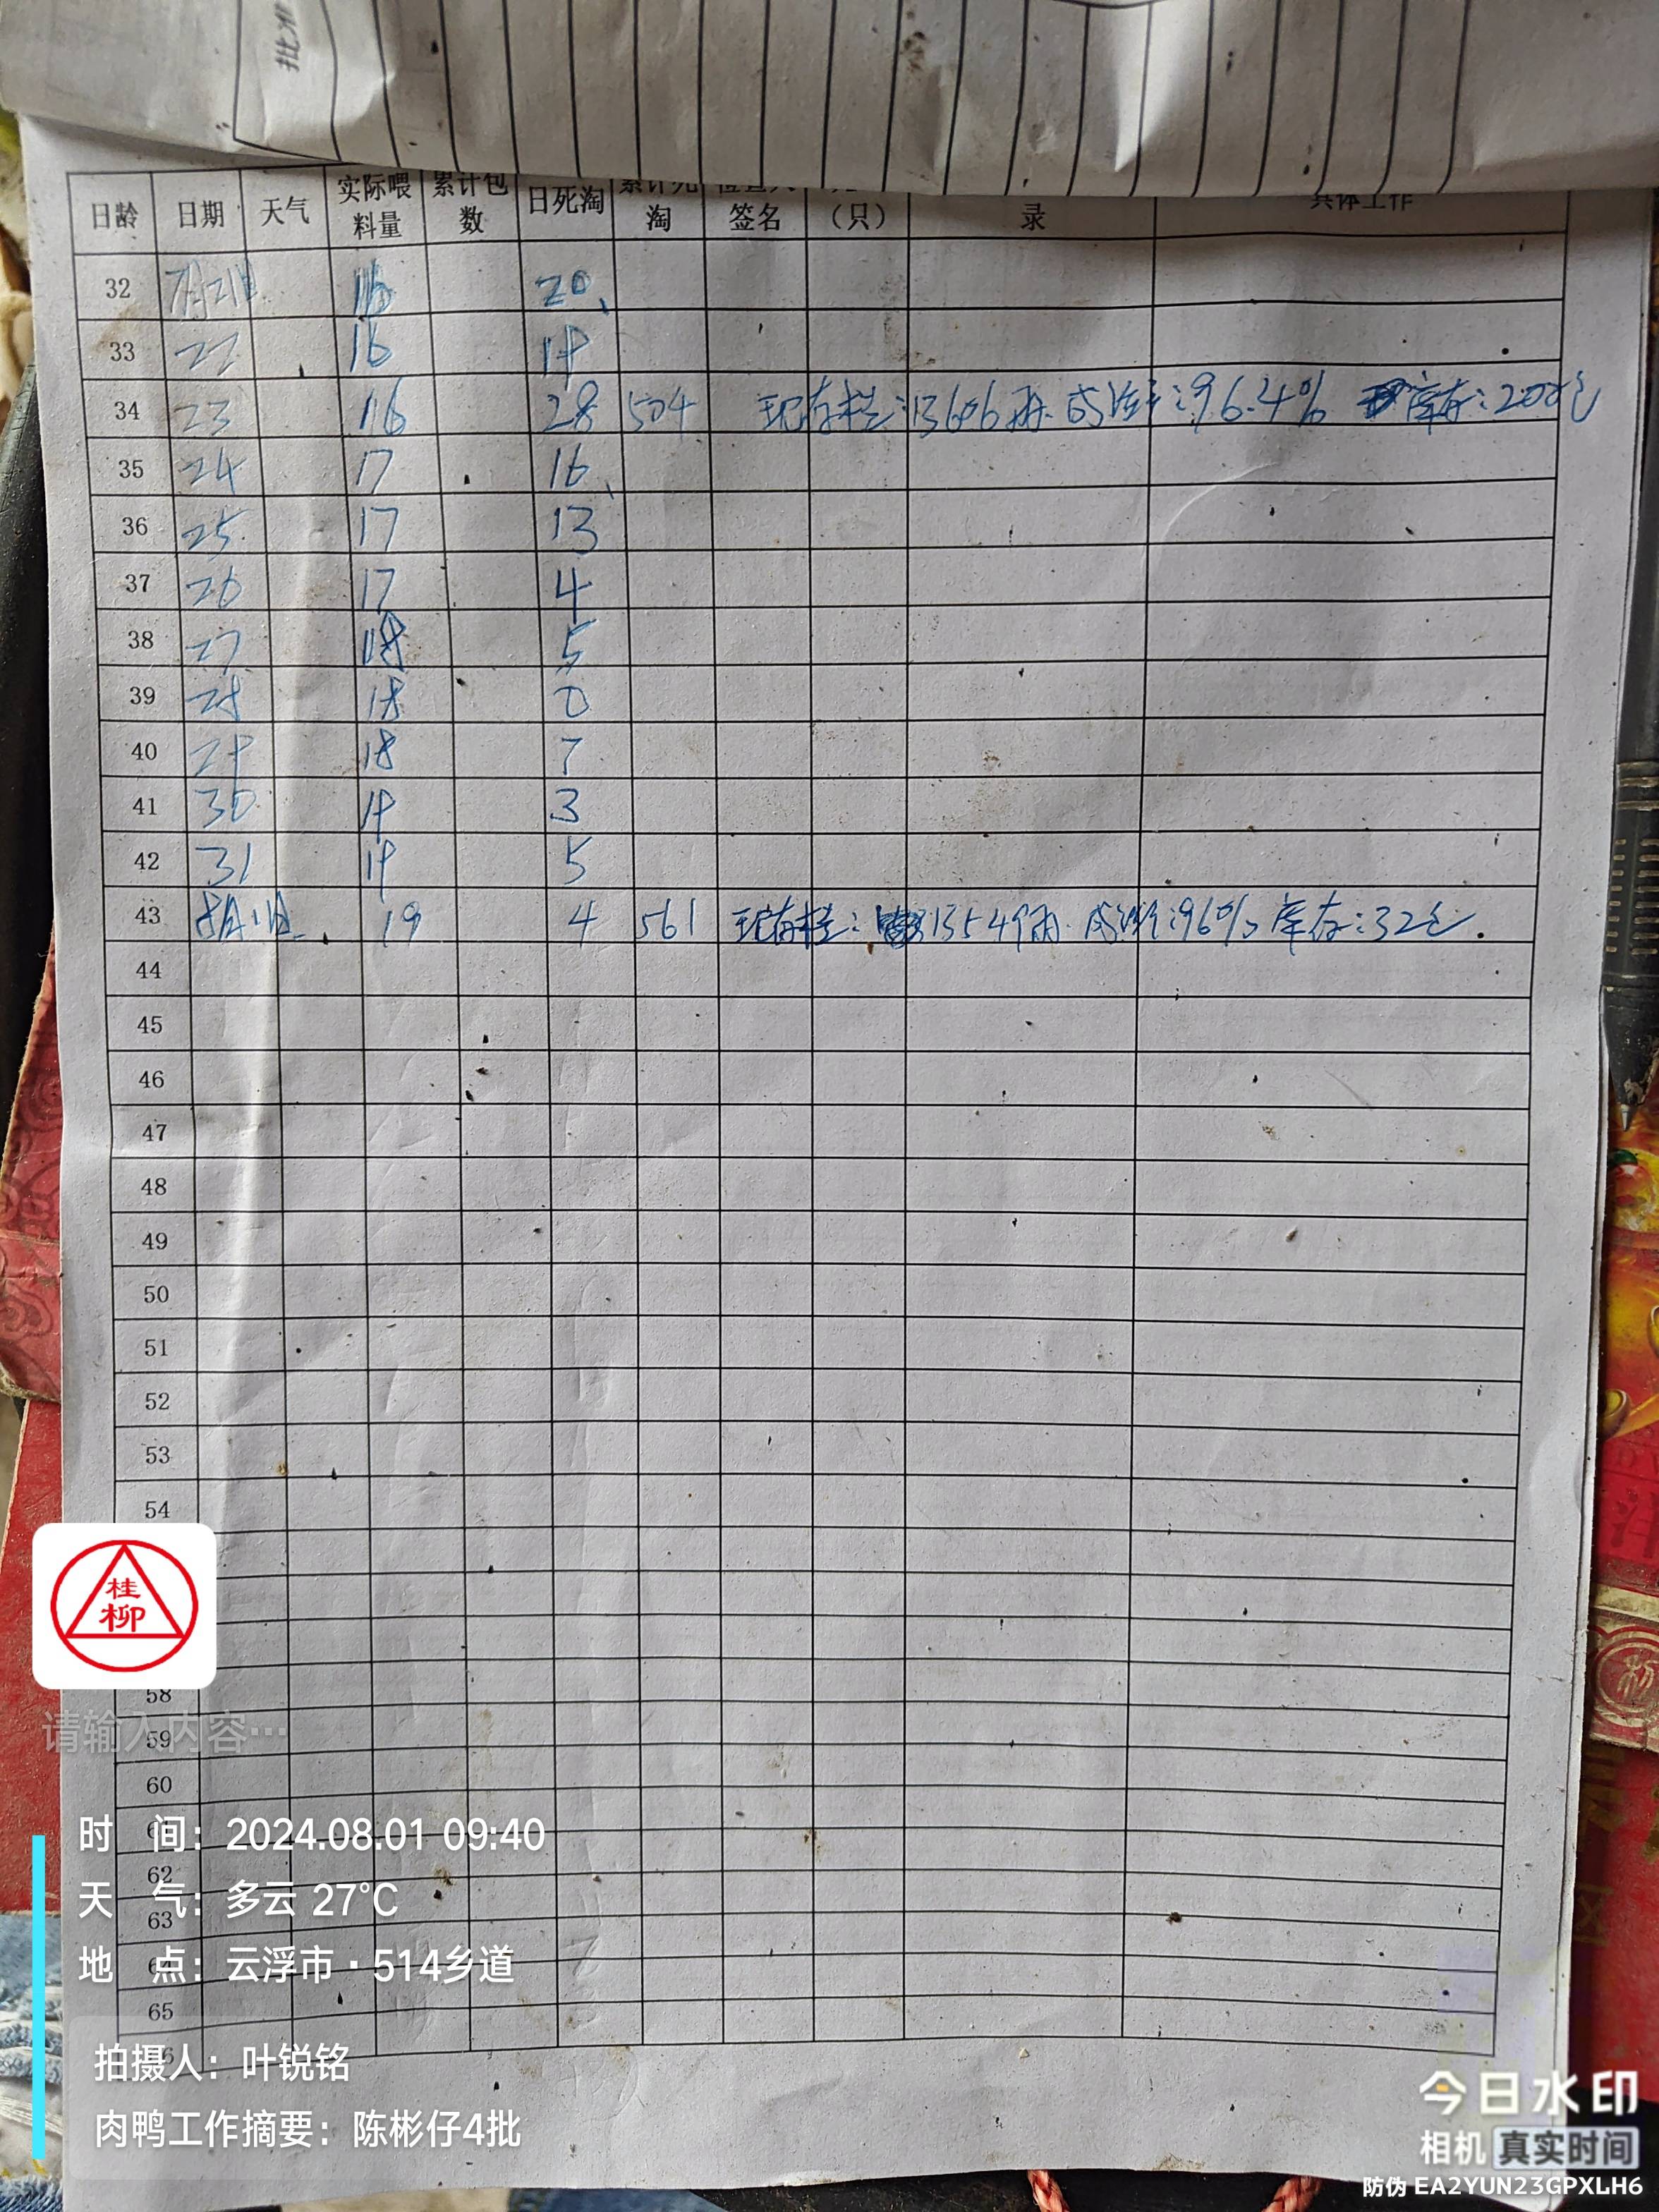 批次
日龄 日期 天气 实际喂料量 累计包数 日死淘 累计死淘 签名 (只) 录 具体工作
32 7月21日 16 20
33 22 16 19
34 23 16 28 504 现存栏:13606羽. 成活率:96.4% 库存:202包
35 24 17 16
36 25 17 13
37 26 17 4
38 27 18 5
39 28 18 0
40 29 18 7
41 30 19 3
42 31 19 5
43 8月1日 19 4 561 现存栏: 13549羽. 成活率:96% 库存:32包.
44
45
46
47
48
49
50
51
52
53
54
桂柳
58
请输入内容…
59
60
61
时 间: 2024.08.01 09:40
62
天 气: 多云 27℃
63
64
地 点: 云浮市·514乡道
65
拍摄人: 叶锐铭
肉鸭工作摘要: 陈彬仔4批
今日水印
相机 真实时间
防伪 EA2YUN23GPXLH6